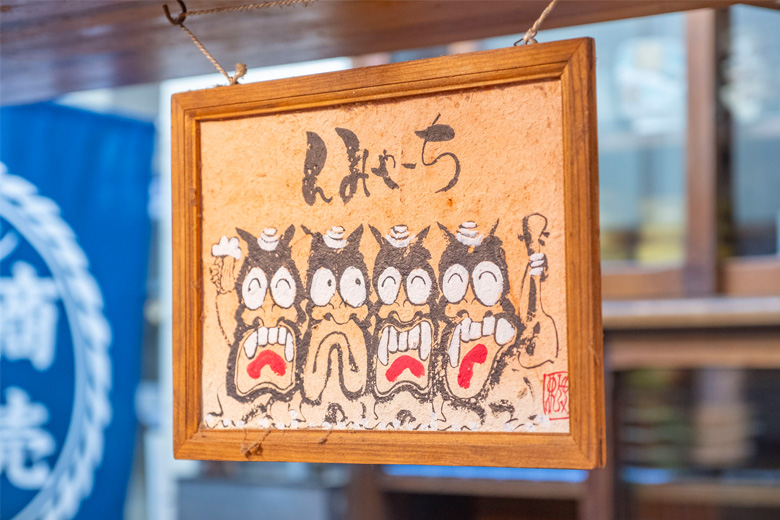 んみゃーち
商
売